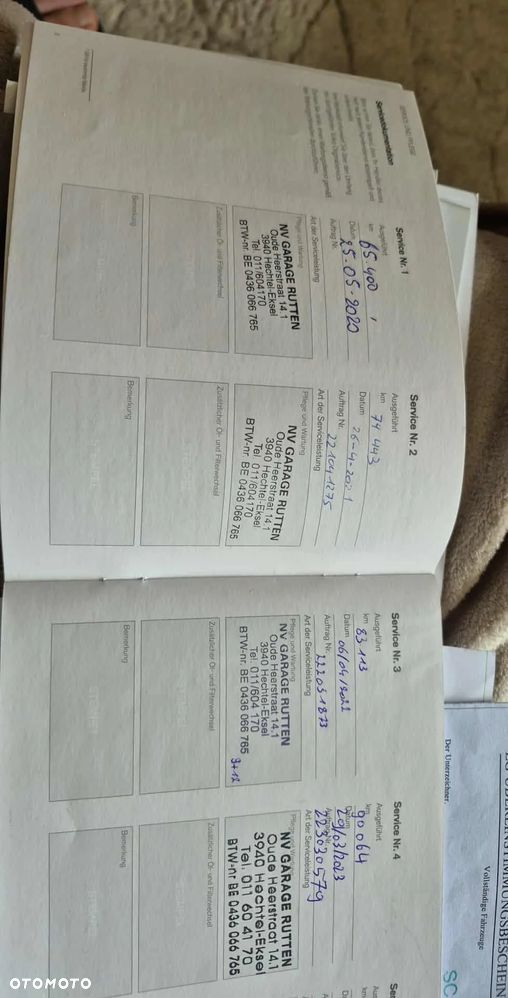 Servicedokumentation
Service Nr. 1
Ausgeführt
km 65.400
Datum 25-05-2020
Auftrag Nr.
Art der Serviceleistung
Pflege und Wartung
NV GARAGE RUTTEN
Oude Heerstraat 14.1
3940 Hechtel-Eksel
Tel. 011/604170
BTW-nr. BE 0436 066 765
Zusätzlicher Öl- und Filterwechsel
Bemerkung
Service Nr. 2
Ausgeführt
km 74 443
Datum 26-4-2021
Auftrag Nr. 221041275
Art der Serviceleistung
Pflege und Wartung
NV GARAGE RUTTEN
Oude Heerstraat 14.1
3940 Hechtel-Eksel
Tel. 011/604170
BTW-nr. BE 0436 066 765
Zusätzlicher Öl- und Filterwechsel
Bemerkung
Service Nr. 3
Ausgeführt
km 83 113
Datum 06/04/2022
Auftrag Nr. 222031873
Art der Serviceleistung
Pflege und Wartung
NV GARAGE RUTTEN
Oude Heerstraat 14.1
3940 Hechtel-Eksel
Tel. 011/604 170
BTW-nr. BE 0436 066 765
Zusätzlicher Öl- und Filterwechsel
Bemerkung
Service Nr. 4
Ausgeführt
km 90 064
Datum 20/03/2023
Auftrag Nr. 223030579
Art der Serviceleistung
NV GARAGE RUTTEN
Oude Heerstraat 14.1
3940 Hechtel-Eksel
Tel. 011 60 41 70
BTW-nr BE 0436 066 765
Zusätzlicher Öl- und Filterwechsel
Bemerkung
Der Unterzeichner.
Vollständige Fahrzeuge
SC
OTOMOTO